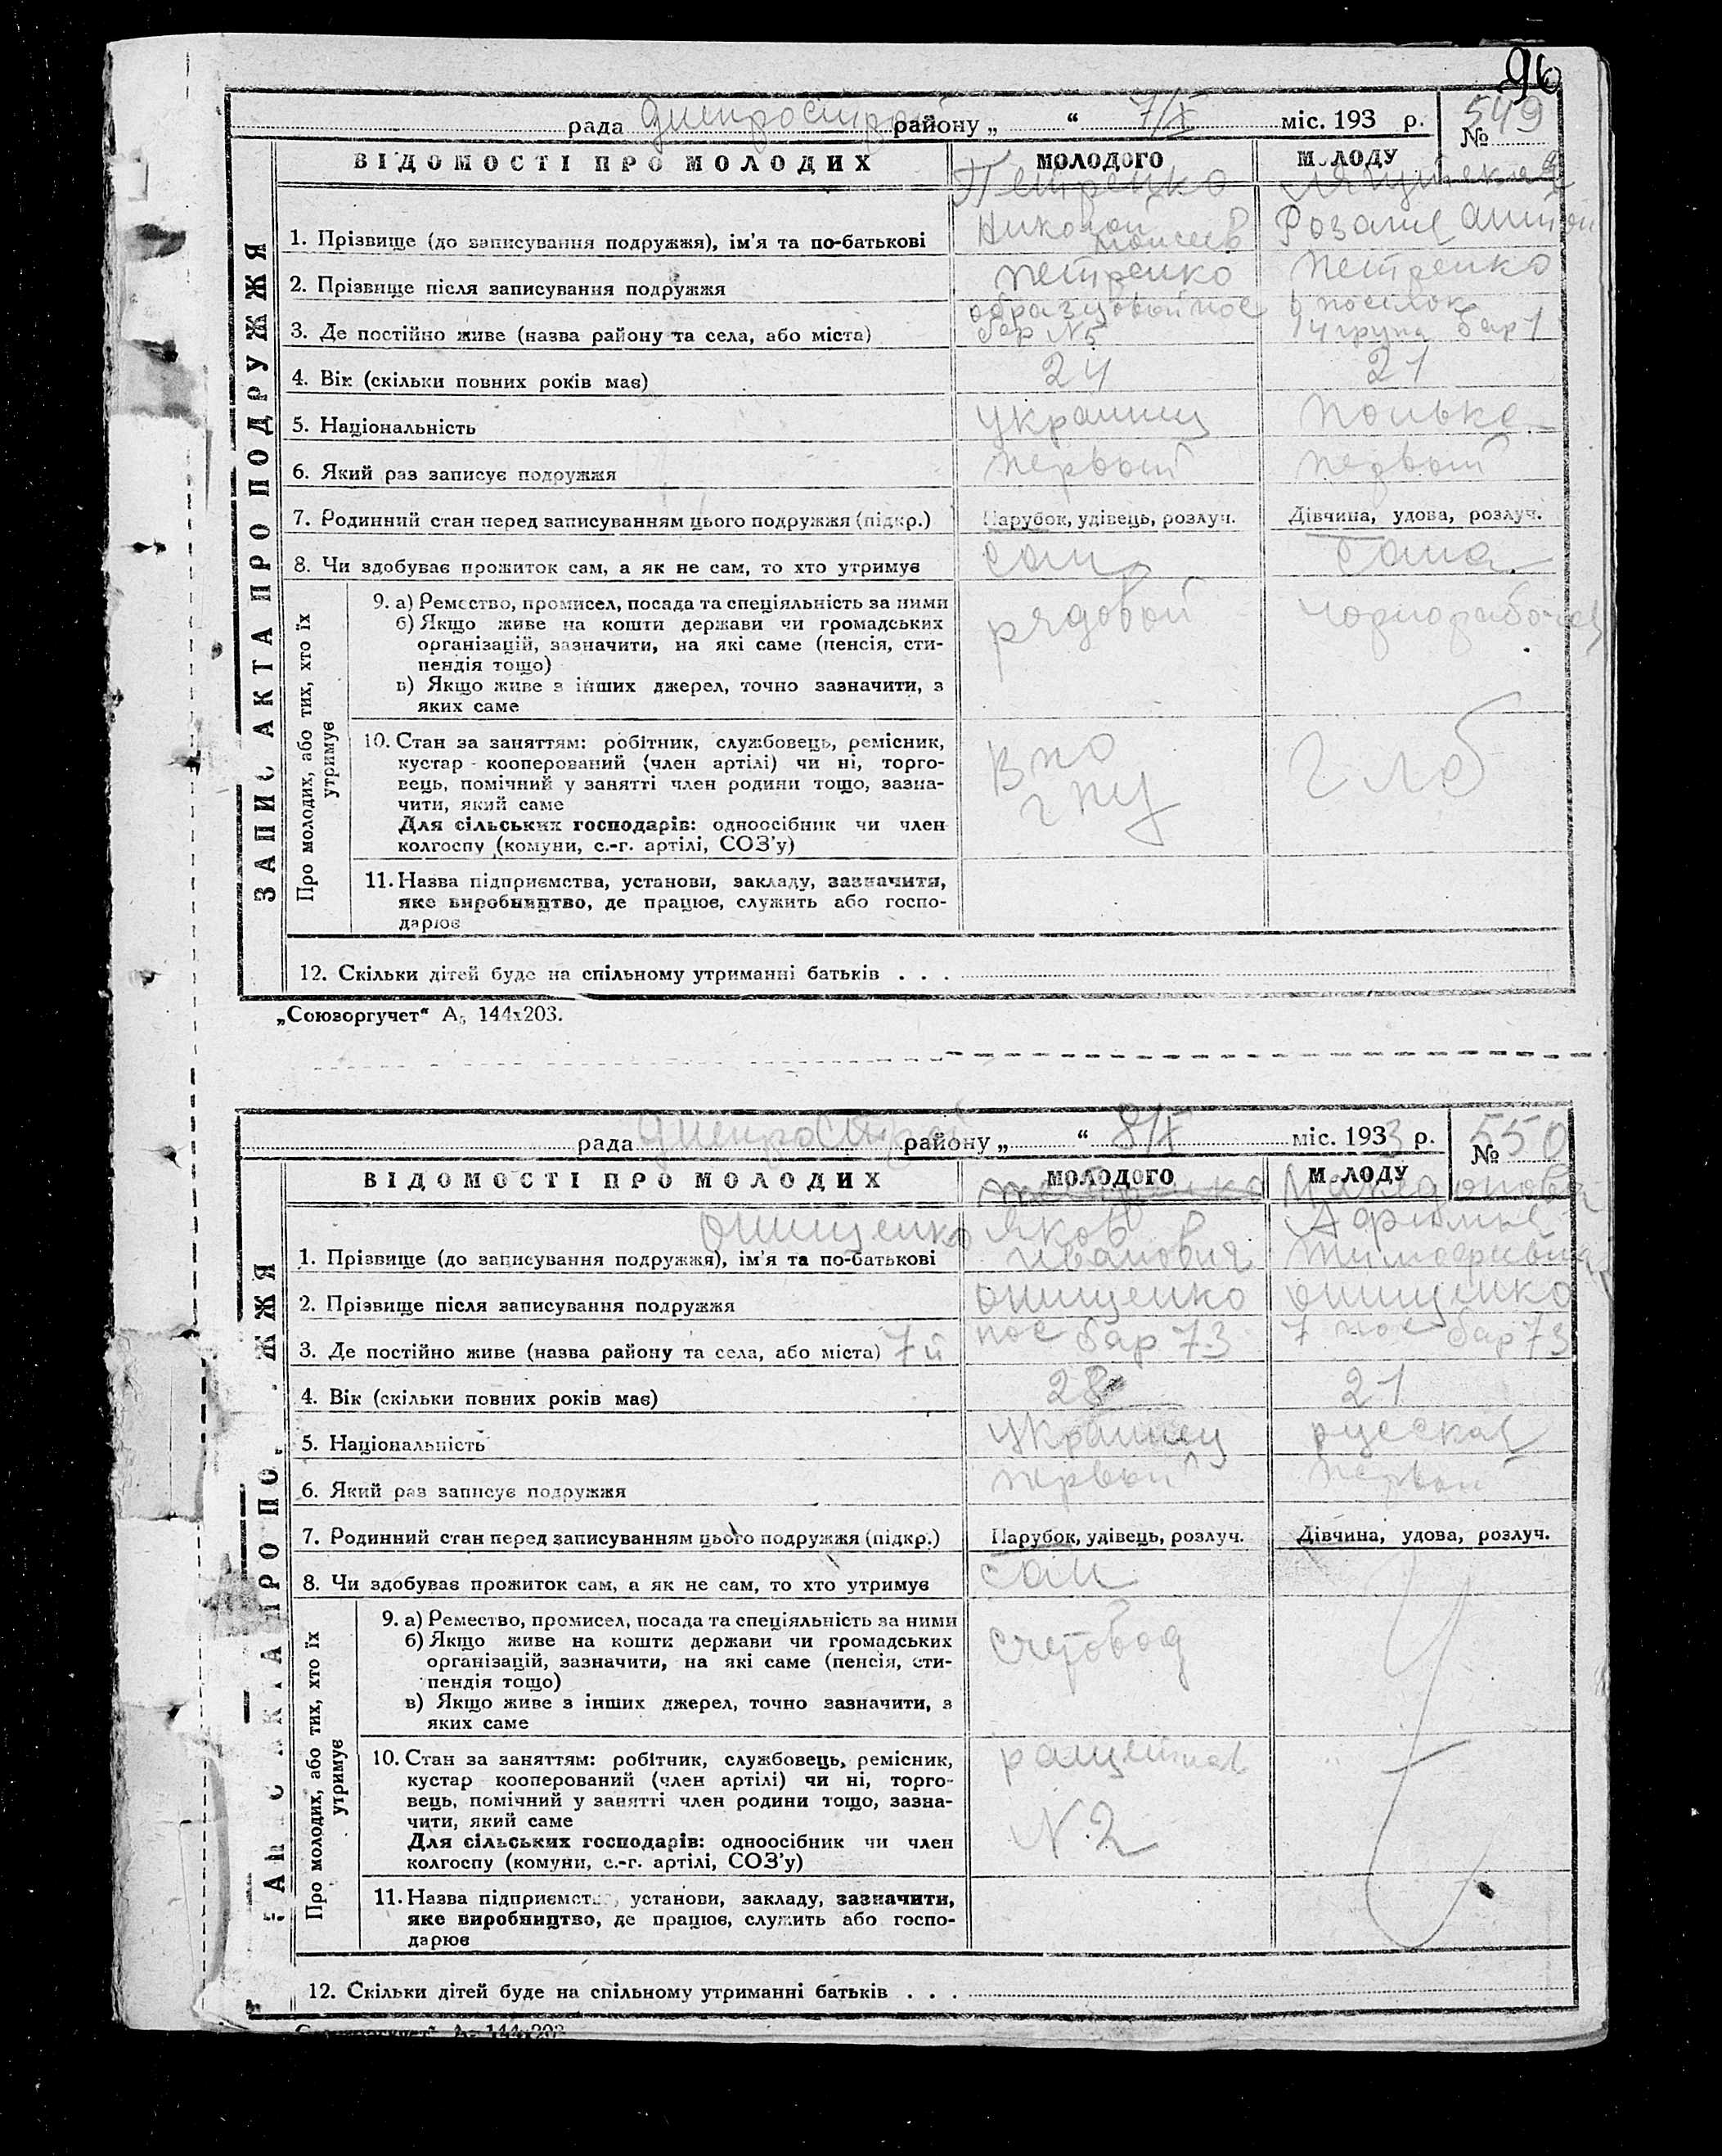 96
рада Днепрострой району „ “ 7/X міс. 193 р. № 549
ВІДОМОСТІ ПРО МОЛОДИХ МОЛОДОГО МОЛОДУ
ЗАПИС АКТА ПРО ПОДРУЖЖЯ
Петренко
Николай Розалие Антон
1. Прізвище (до записування подружжя), ім’я та по-батькові Моисеев
2. Прізвище після записування подружжя Петренко Петренко
образцовый пос 6 поселок
3. Де постійно живе (назва району та села, або міста) бар №5 4 група бар 1
4. Вік (скільки повних років має) 24 21
5. Національність украинец полька
6. Який раз записує подружжя первый первый
7. Родинний стан перед записуванням цього подружжя (підкр.) Парубок, удівець, розлуч. Дівчина, удова, розлуч.
8. Чи здобуває прожиток сам, а як не сам, то хто утримує сам сама
Про молодих, або тих, хто їх утримує
9. а) Ремество, промисел, посада та спеціяльність за ними рядовой чорнорабочая
б) Якщо живе на кошти держави чи громадських
організацій, зазначити, на які саме (пенсія, сти-
пендія тощо)
в) Якщо живе з інших джерел, точно зазначити, з
яких саме
10. Стан за заняттям: робітник, службовець, ремісник,
кустар - кооперований (член артілі) чи ні, торго-
вець, помічний у занятті член родини тощо, зазна-
чити, який саме
Для сільських господарів: одноосібник чи член
колгоспу (комуни, с.-г. артілі, СОЗ’у)
ГПУ
11. Назва підприємства, установи, закладу, зазначити,
яке виробництво, де працює, служить або госпо-
дарює
12. Скільки дітей буде на спільному утриманні батьків . . .
„Союзоргучет“ А₅ 144х203.
рада Днепрострой району „ “ 8/X міс. 1933 р. № 550
ВІДОМОСТІ ПРО МОЛОДИХ МОЛОДОГО МОЛОДУ
Онищенко Яков
1. Прізвище (до записування подружжя), ім’я та по-батькові Иванович Тимофеевна
2. Прізвище після записування подружжя Онищенко Онищенко
3. Де постійно живе (назва району та села, або міста) 7й пос бар 73 7 пос бар 73
4. Вік (скільки повних років має) 28 21
5. Національність украинец русская
6. Який раз записує подружжя первый первый
7. Родинний стан перед записуванням цього подружжя (підкр.) Парубок, удівець, розлуч. Дівчина, удова, розлуч.
8. Чи здобуває прожиток сам, а як не сам, то хто утримує сам
Про молодих, або тих, хто їх утримує
9. а) Ремество, промисел, посада та спеціяльність за ними счетовод
б) Якщо живе на кошти держави чи громадських
організацій, зазначити, на які саме (пенсія, сти-
пендія тощо)
в) Якщо живе з інших джерел, точно зазначити, з
яких саме
10. Стан за заняттям: робітник, службовець, ремісник,
кустар кооперований (член артілі) чи ні, торго-
вець, помічний у занятті член родини тощо, зазна-
чити, який саме
Для сільських господарів: одноосібник чи член
колгоспу (комуни, с.-г. артілі, СОЗ’у)
N 2
11. Назва підприємства, установи, закладу, зазначити,
яке виробництво, де працює, служить або госпо-
дарює
12. Скільки дітей буде на спільному утриманні батьків . . .